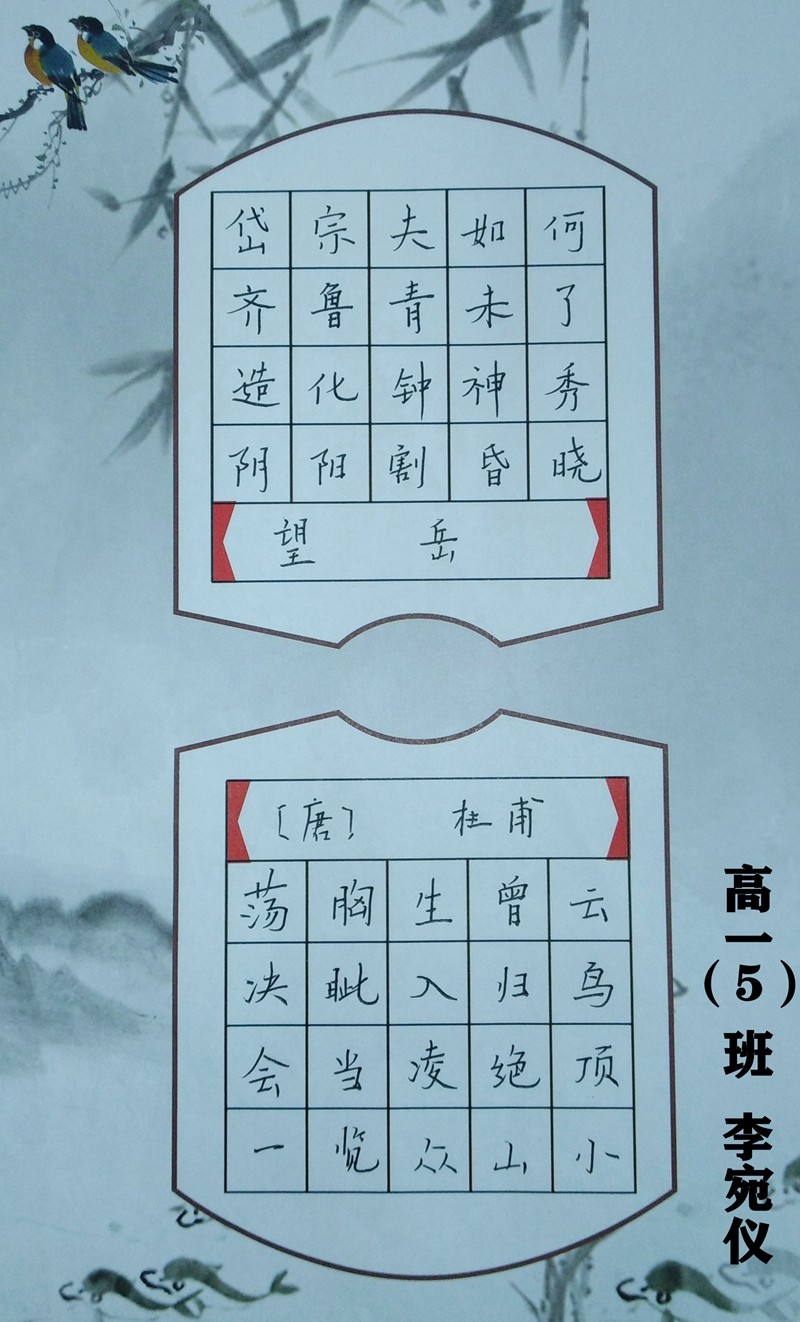 岱宗夫如何
齐鲁青未了
造化钟神秀
阴阳割昏晓
望 岳
〔唐〕 杜甫
荡胸生曾云
决眦入归鸟
会当凌绝顶
一览众山小
高一（5）班 李宛仪